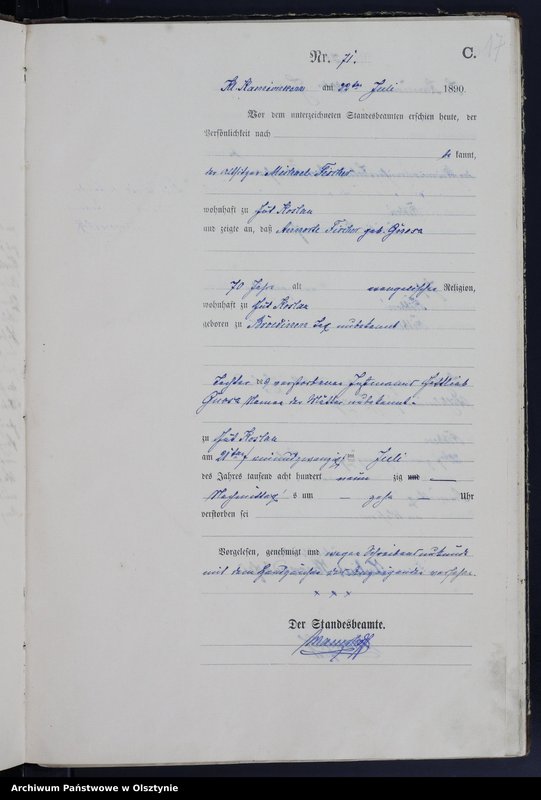 17
Nr. 71.
C.
am 22ten Juli 1890.
Vor dem unterzeichneten Standesbeamten erschien heute, der
Persönlichkeit nach
be kannt,
der Altsitzer Michael Fischer
wohnhaft zu Gut Koslau
und zeigte an, daß Annorte Fischer geb.
70 Jahr alt evangelischer Religion,
wohnhaft zu Gut Koslau
geboren zu unbekannt
Tochter des verstorbenen Instmanns Gottlieb
Namen der Mutter unbekannt.
zu Gut Koslau
am 21ten einundzwanzig ten Juli
des Jahres tausend acht hundert neun zig und
Nachmittags um zehn Uhr
verstorben sei
Vorgelesen, genehmigt und wegen Schreibensunkunde
mit dem Handzeichen des Anzeigenden versehen.
x x x
Der Standesbeamte.
Archiwum Państwowe w Olsztynie